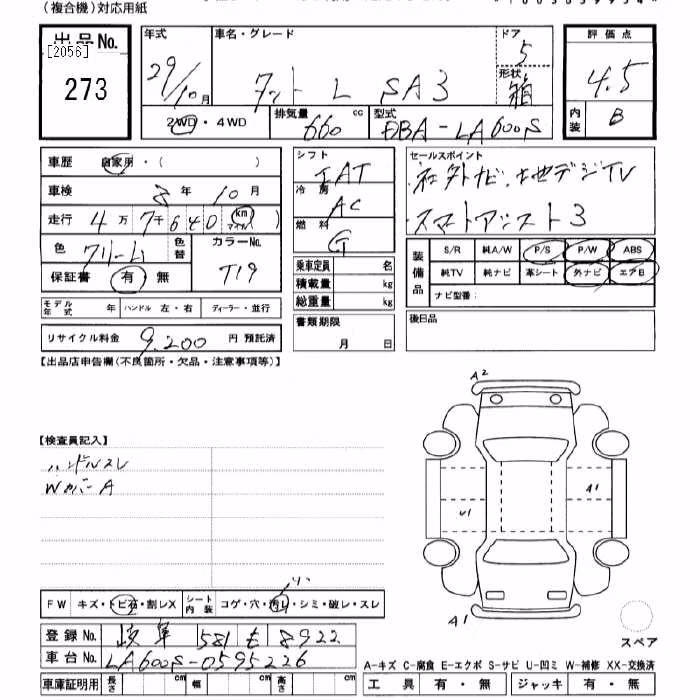 (複合機)対応用紙
出品No.
[2056]
273
年式 29/10月
車名・グレード タント L SA3
ドア 5
形状 箱
2WD・4WD
排気量 660 cc
型式 DBA-LA600S
評価点 4.5
内装 B
車歴 自家用・( )
車検 8年10月
走行 4万7千640 km マイル
色 クリーム 色替 カラーNo. T19
保証書 有 無
モデル年式 年 ハンドル 左・右 ディーラー・並行
リサイクル料金 9,200 円 預託済
シフト IAT
冷房 AC
燃料 G
乗車定員 名
積載量 kg
総重量 kg
書類期限
月 日
セールスポイント
社外ナビ・地デジTV
スマートアシスト3
装備品 S/R 純A/W P/S P/W ABS
純TV 純ナビ 革シート 外ナビ エアB
ナビ型番:
後日品
【出品店申告欄(不良箇所・欠品・注意事項等)】
【検査員記入】
ハンドルスレ
Wカバー A
A2
U1
A1
A1
スペア
FW キズ・トビ石・割レX シート内装 コゲ・穴・汚レ・シミ・破レ・スレ
登録No. 岐阜 581 も 8922
車台No. LA600S-0595226
車庫証明用 長さ cm 幅 cm 高さ cm
A-キズ C-腐食 E-エクボ S-サビ U-凹ミ W-補修 XX-交換済
工具 有・無 ジャッキ 有・無